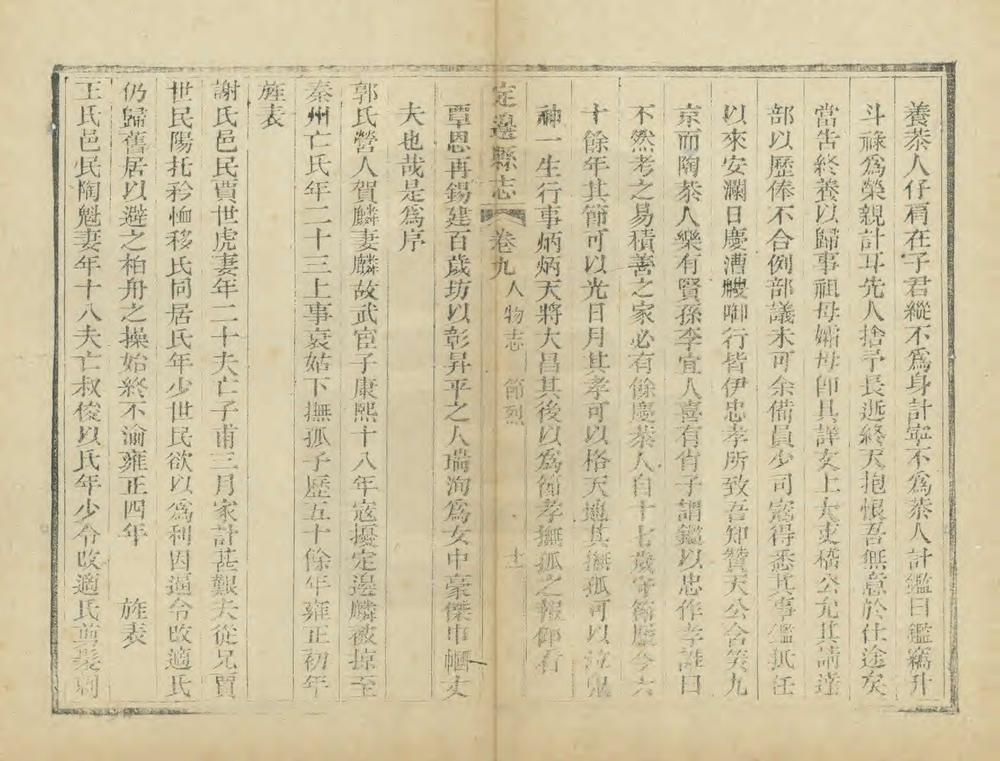 養恭人仔肩在字君縱不爲身計寧不爲恭人計鑑曰鑑竊升
斗祿爲榮親計耳先人捨予長逝終天抱恨吾無意於仕途矣
當告終養以歸事祖母孀母即具詳文上大吏稽公允其請達
部以歷俸不合例部議未可余備員少司寇得悉其事鑑抵任
以來安瀾日慶漕艘啣行皆伊忠孝所致吾知贊天公含笑九
京而陶恭人樂有賢孫李宜人喜有肖子謂鑑以忠作孝誰曰
不然考之易積善之家必有餘慶恭人自十七歲守節歷今六
十餘年其節可以光日月其孝可以格天地其撫孤可以泣鬼
神一生行事炳炳天將大昌其後以爲節孝撫孤之報卽看
定邊縣志 卷九 人物志 節烈 十一
覃恩再錫建百歲坊以彰昇平之人瑞洵爲女中豪傑巾幗丈
夫也哉是爲序
郭氏營人賀麟妻麟故武宦子康熙十八年寇擾定邊麟被掠至
秦州亡氏年二十三上事衰姑下撫孤子歷五十餘年雍正初年
旌表
謝氏邑民賈世虎妻年二十夫亡子甫三月家計甚艱夫從兄賈
世民陽托矜恤移氏同居氏年少世民欲以爲利因逼令改適氏
仍歸舊居以避之柏舟之操始終不渝雍正四年 旌表
王氏邑民陶魁妻年十八夫亡叔俊以氏年少令改適氏剪髮剠